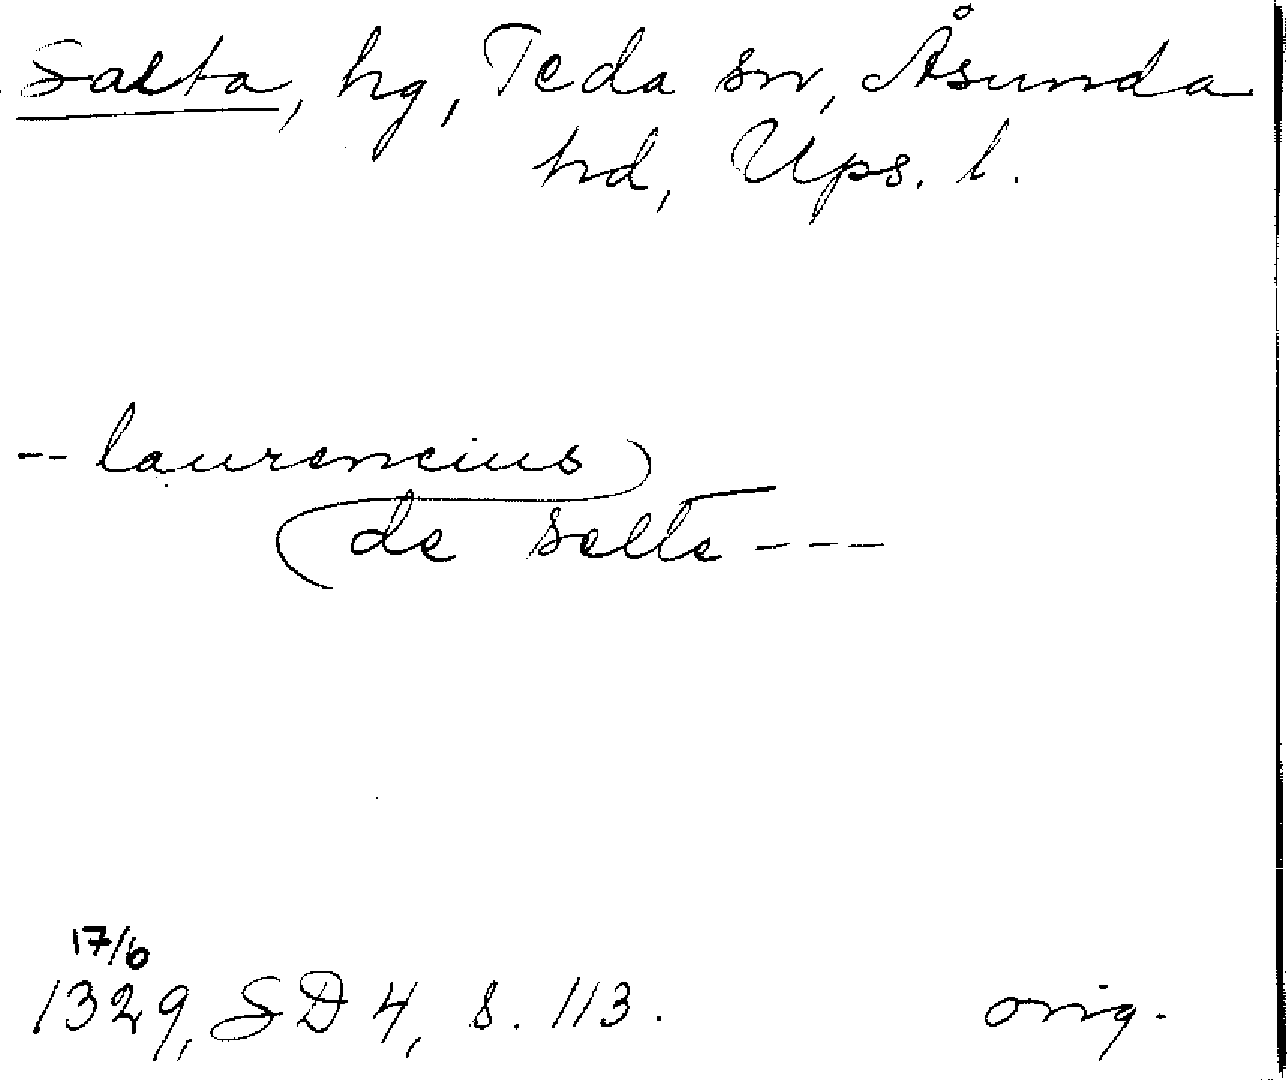 Salta, hg, Teda sn, Åsunda
hd, Ups. l.
-- laurencius
de selte ---
17/6
1329, SD 4, s. 113. orig.